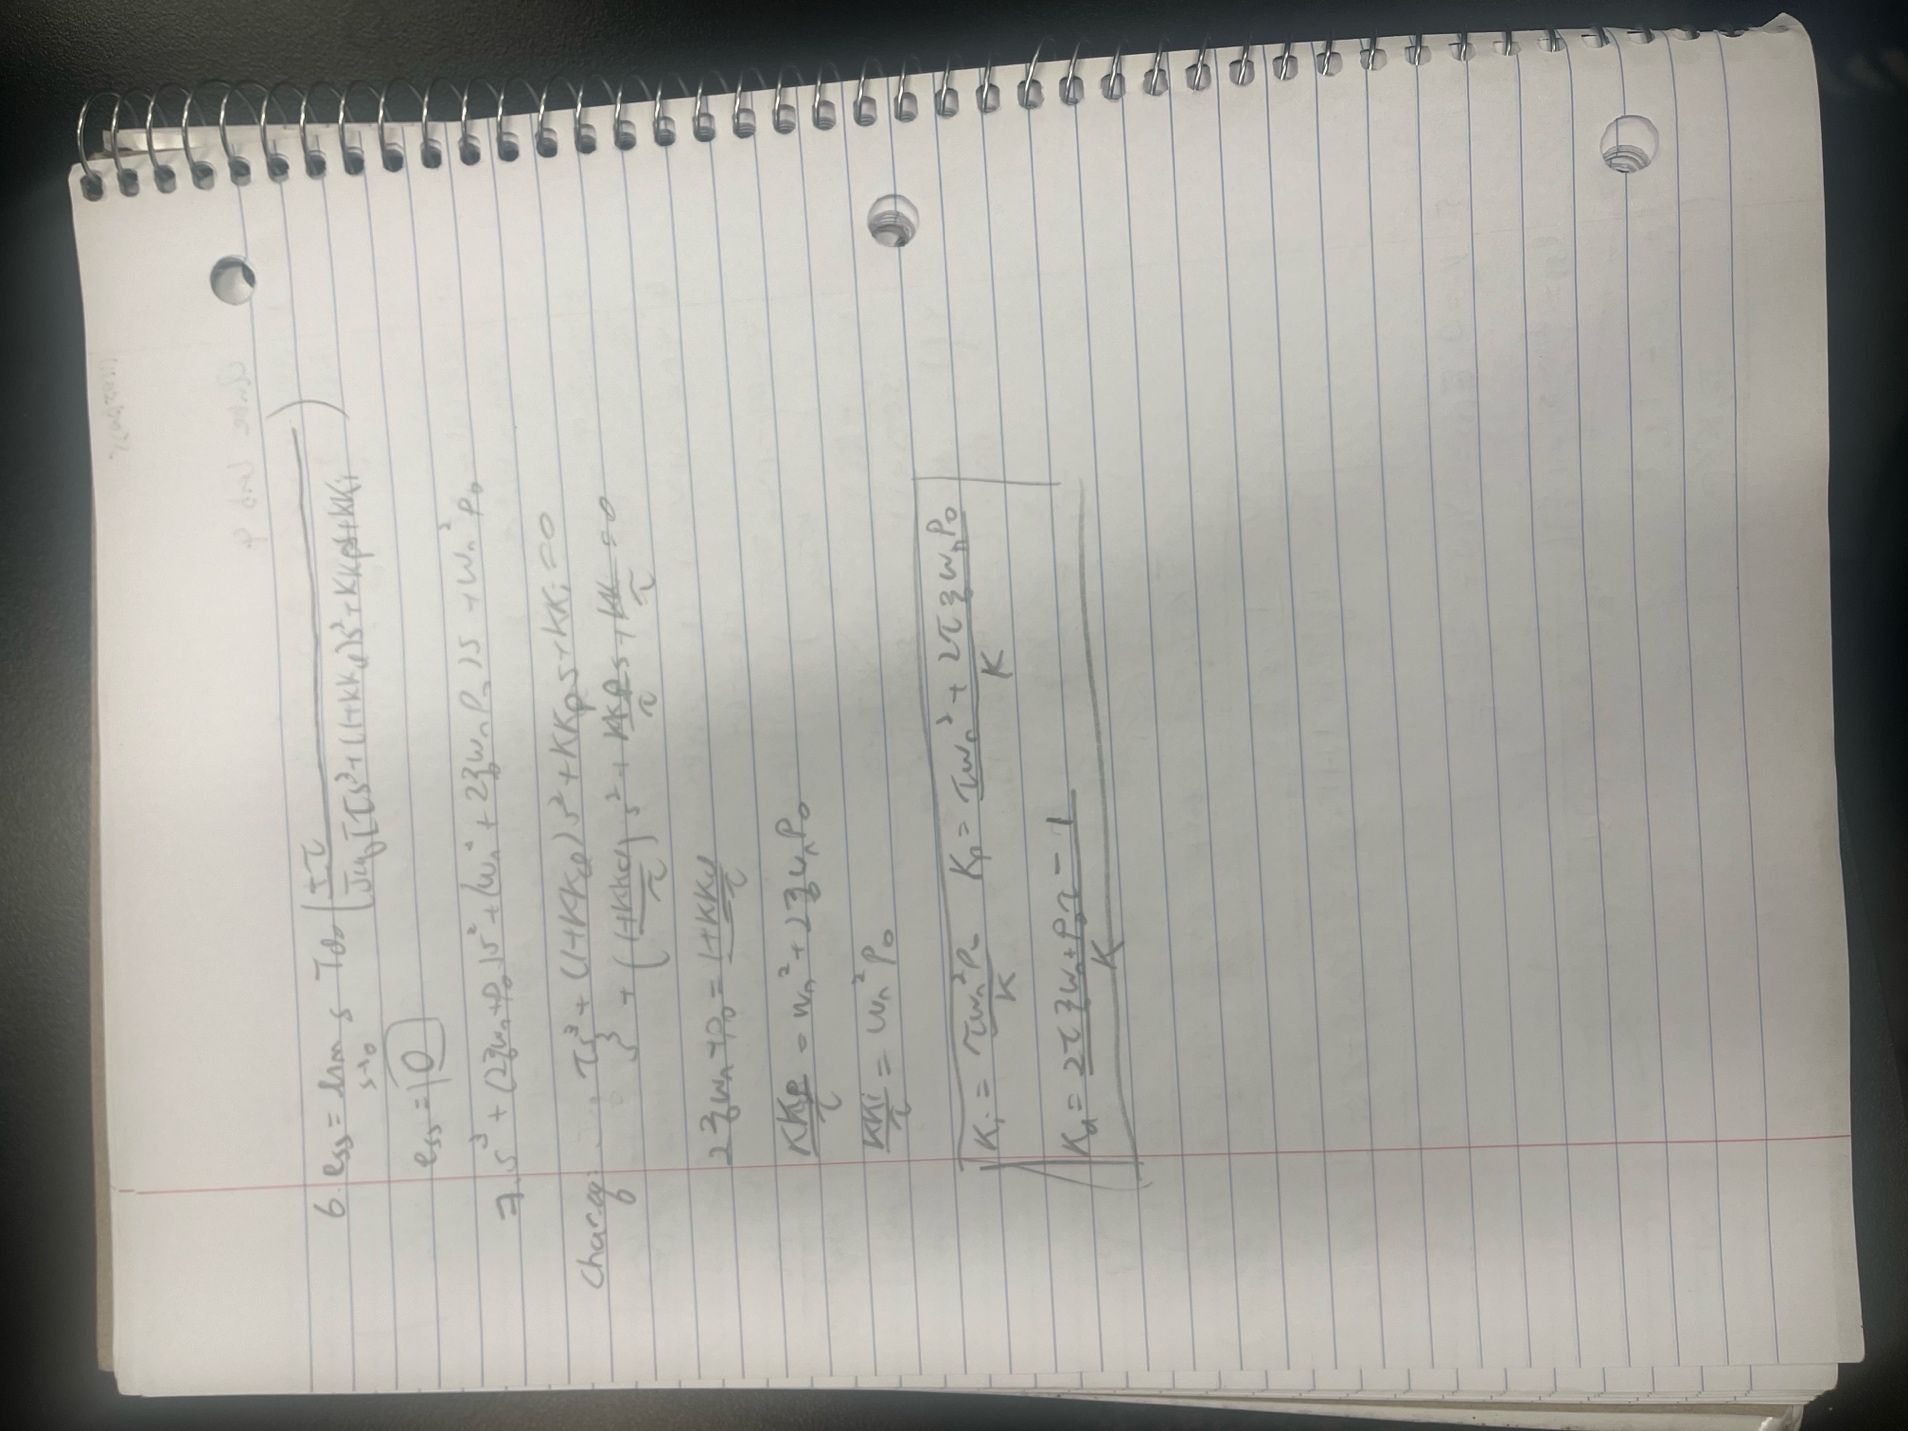 6. ess = lim s Tdo ( Iτ / Jeq [τs³ + (1+KKd)s² + KKps + KKi )
s→0
ess = 0
7. s³ + (2ζωn + Po)s² + (ωn² + 2ζωnPo)s + ωn² Po
Char eq: τs³ + (1+KKd)s² + KKps + KKi = 0
s³ + (1+KKd)/τ s² + KKp/τ s + KK/τ = 0
2ζωn + Po = 1+KKd/τ
KKp/τ = ωn² + 2ζωnPo
KKi/τ = ωn² Po
Ki = τωn²Po/K Kp = τωn² + 2τζωnPo/K
Kd = 2τζωn + Poτ - 1/K